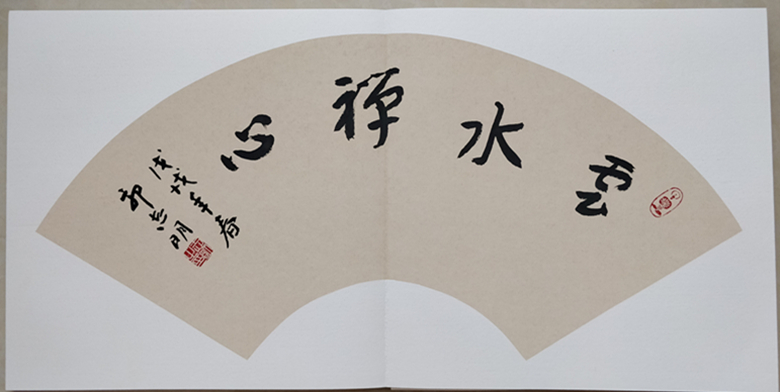 雲水禅心
戊戌年春
郭志明